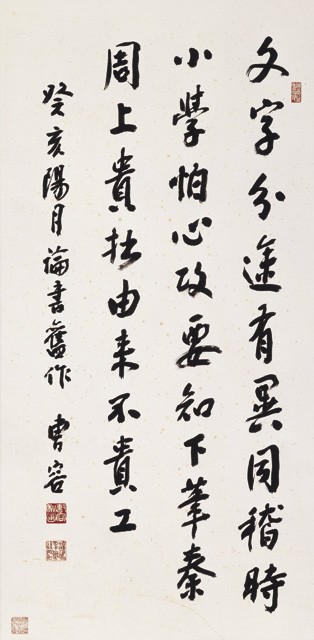 文字分途有異同稽時
小學怕心攻要知下筆秦
周上貴拙由来不貴工
癸亥陽月論書舊作 曹容